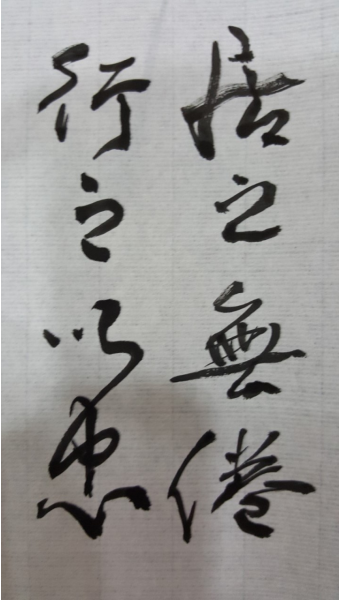 居之無倦
行之以忠